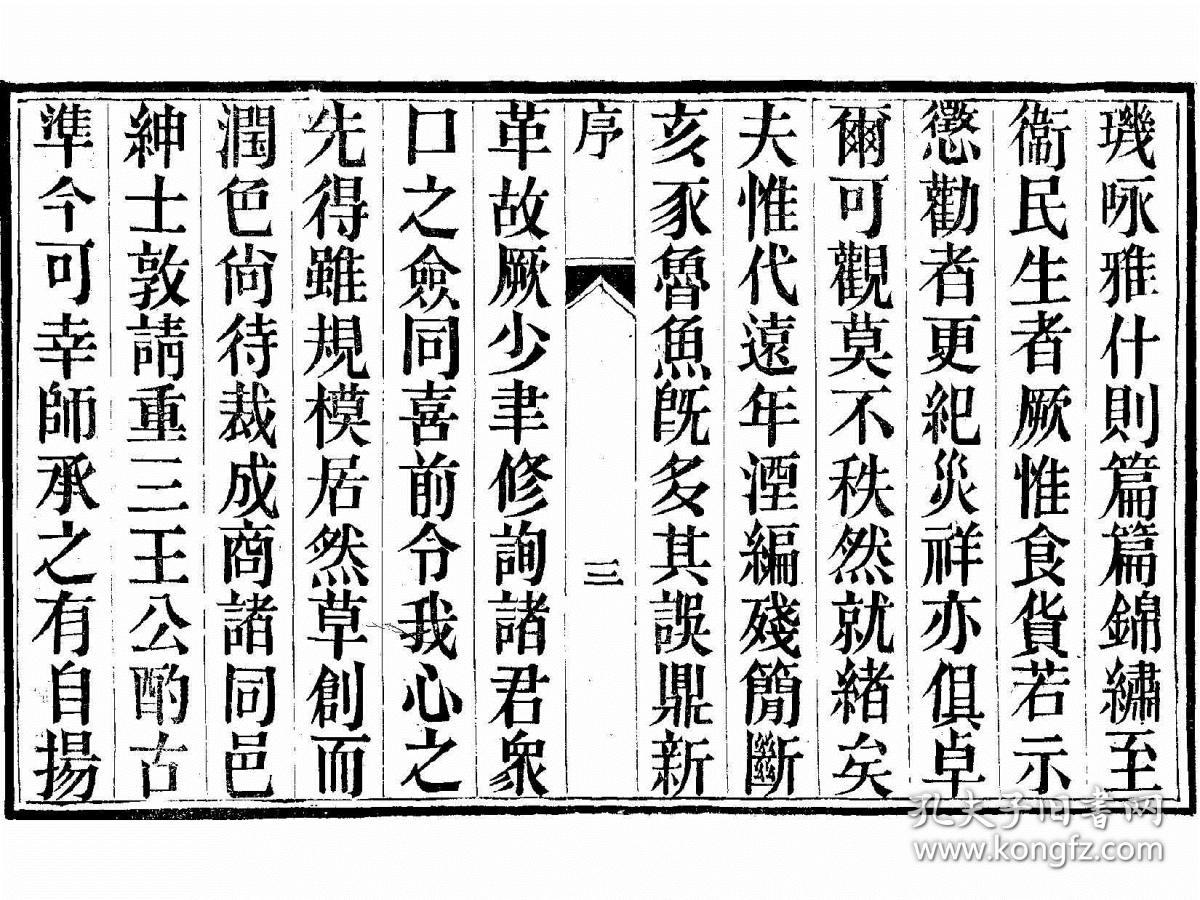 璣咏雅什則篇篇錦繡至
衞民生者厥惟食貨若示
懲勸者更紀災祥亦俱卓
爾可觀莫不秩然就緒矣
夫惟代遠年湮編殘簡斷
亥豕魯魚旣多其誤鼎新
序
三
革故厥少聿修詢諸君衆
口之僉同喜前令我心之
先得雖規模居然草創而
潤色尙待裁成商諸同邑
紳士敦請重三王公酌古
準今可幸師承之有自揚
孔夫子旧书网
www.kongfz.com